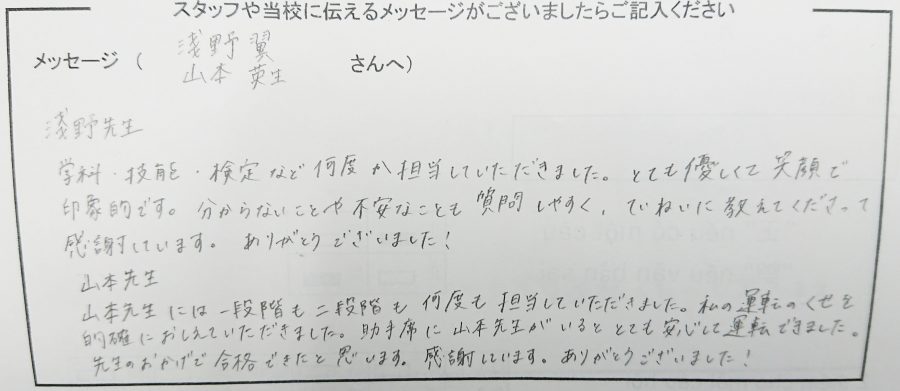 スタッフや当校に伝えるメッセージがございましたらご記入ください
浅野 翼
メッセージ ( 山本 英生 さんへ)
浅野先生
学科・技能・検定など何度か担当していただきました。とても優しくて笑顔で
印象的です。分からないことや不安なことも質問しやすく、ていねいに教えてくださって
感謝しています。ありがとうございました!
山本先生
山本先生には一段階も二段階も何度も担当していただきました。私の運転のくせを
的確におしえていただきました。助手席に山本先生がいるととても安心して運転できました。
先生のおかげで合格できたと思います。感謝しています。ありがとうございました!